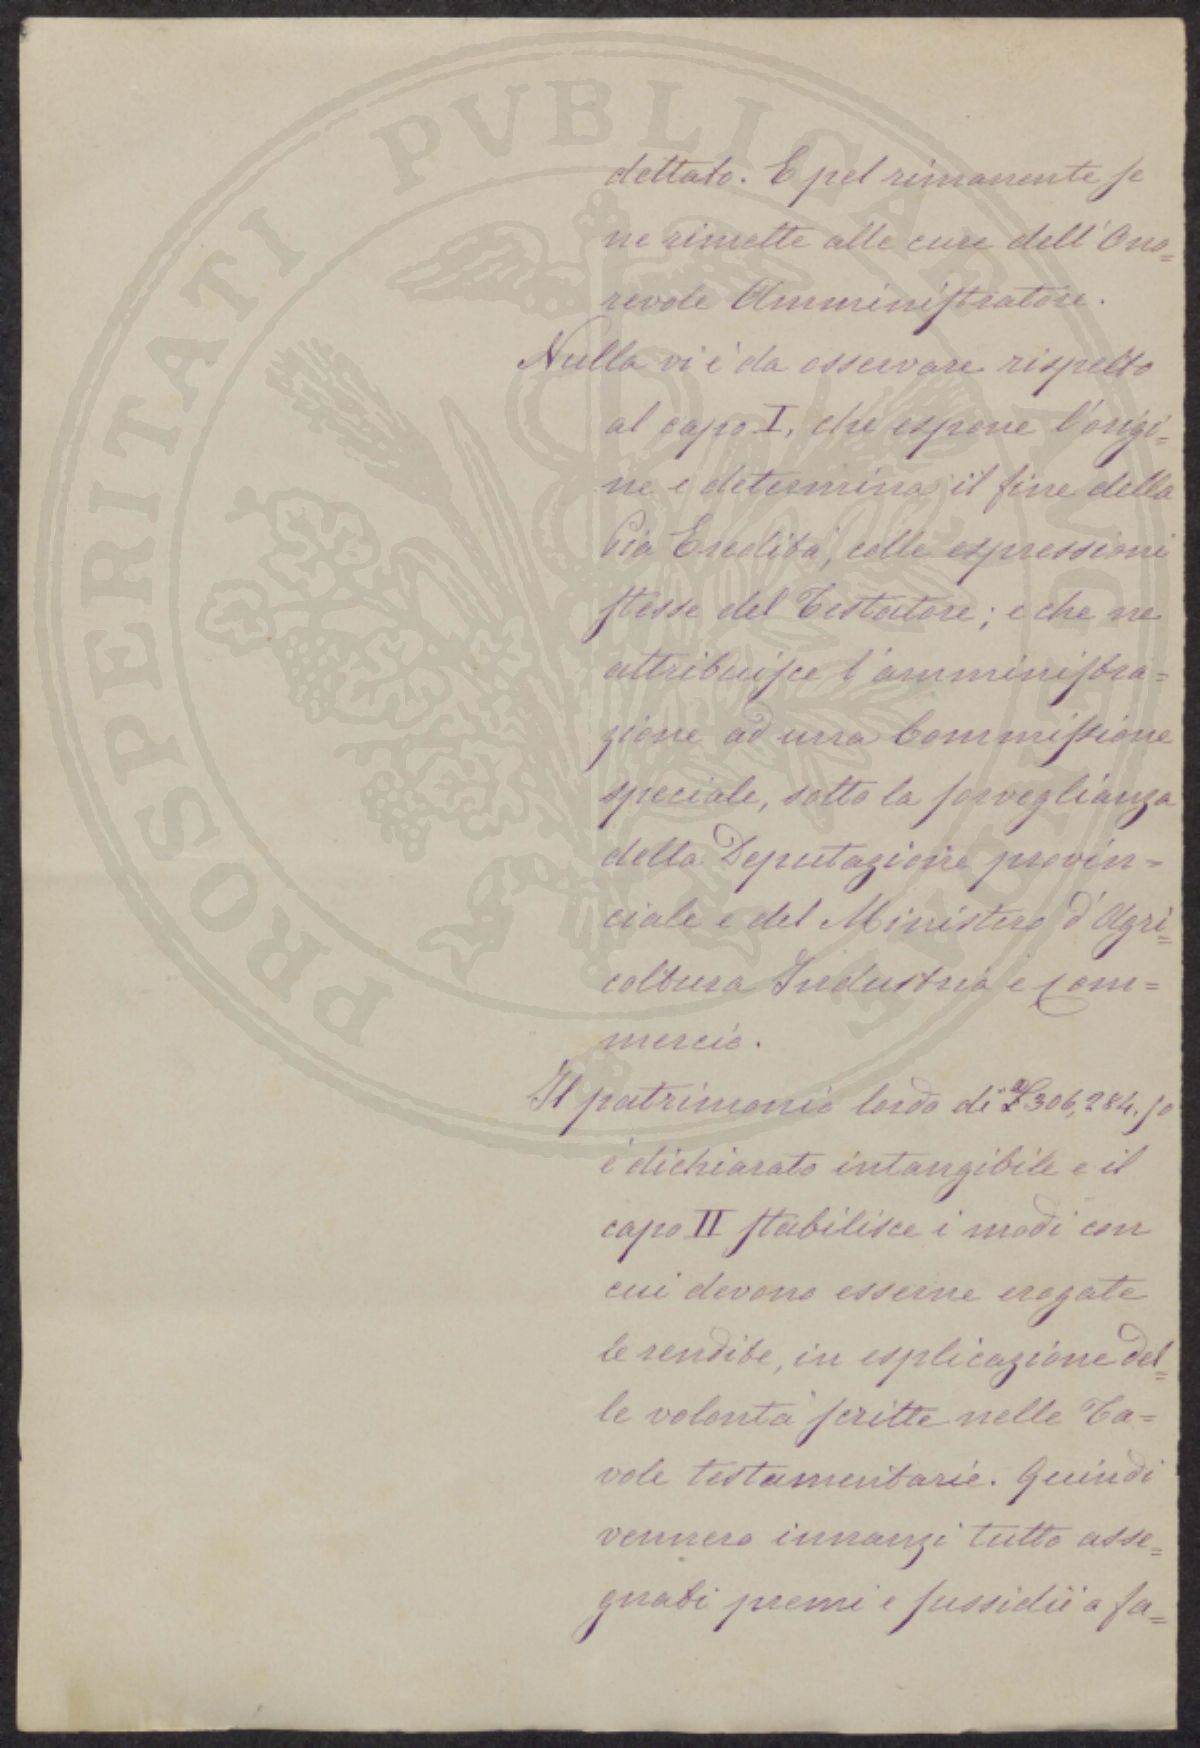 dettato. E pel rimanente se
ne rimette alle cure dell'Ono=
revole Amministratore.
Nulla vi è da osservare rispetto
al capo I, che espone l'origi=
ne e determina il fine della
Pia Eredità, colle espressioni
stesse del Testatore; e che ne
attribuisce l'amministra=
zione ad una Commissione
speciale, sotto la sorveglianza
della Deputazione provin=
ciale e del Ministero d'Agri=
coltura Industria e Com=
mercio.
Il patrimonio lordo di £ 306,284.50
è dichiarato intangibile e il
capo II stabilisce i modi con
cui devono esserne erogate
le rendite, in esplicazione del=
le volontà scritte nelle Ta=
vole testamentarie. Quindi
vennero innanzi tutto asse=
gnati premi e sussidii a fa=
PROSPERITATI PVBLICAE AVGENDAE